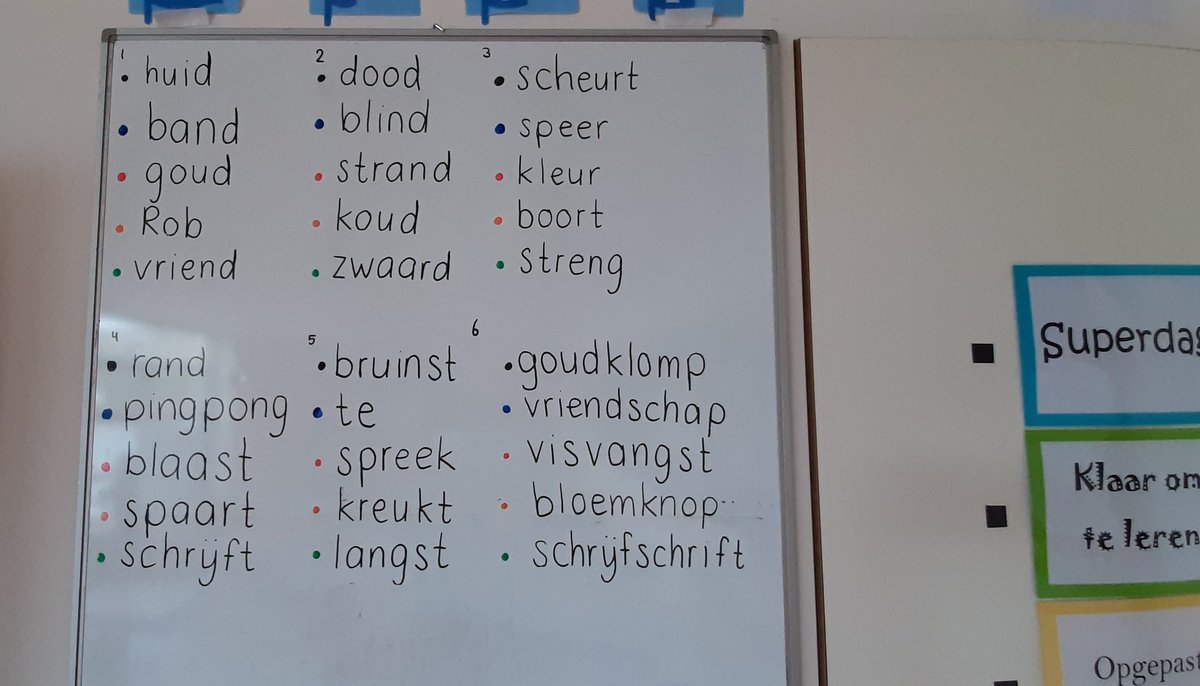 1
• huid
• band
• goud
• Rob
• vriend
2
• dood
• blind
• strand
• koud
• zwaard
3
• scheurt
• speer
• kleur
• boort
• streng
4
• rand
• pingpong
• blaast
• spaart
• schrijft
5
• bruinst
• te
• spreek
• kreukt
• langst
6
• goudklomp
• vriendschap
• visvangst
• bloemknop
• schrijfschrift
Klaar om
te leren